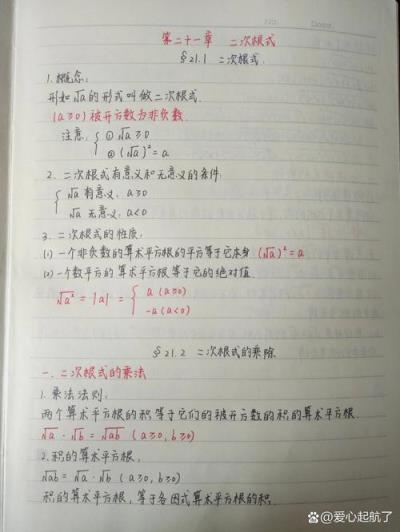 No. Date.
第二十一章 二次根式
§21.1 二次根式.
1. 概念:
形如√a的形式叫做二次根式.
(a≥0) 被开方数为非负数.
注意 { ① √a≥0
② (√a)²=a
2. 二次根式有意义和无意义的条件:
{ √a 有意义, a≥0
√a 无意义, a<0
3. 二次根式的性质:
(1) 一个非负数的算术平方根的平方等于它本身 (√a)²=a
(2) 一个数平方的算术平方根等于它的绝对值.
√a² = |a| = { a (a≥0)
-a (a<0)
§21.2 二次根式的乘除.
一. 二次根式的乘法
1. 乘法法则:
两个算术平方根的积等于它们的被开方数的积的算术平方根.
√a · √b = √ab (a≥0, b≥0)
2. 积的算术平方根.
√ab = √a · √b (a≥0, b≥0)
积的算术平方根, 等于各因式算术平方根的积.
@爱心起航了